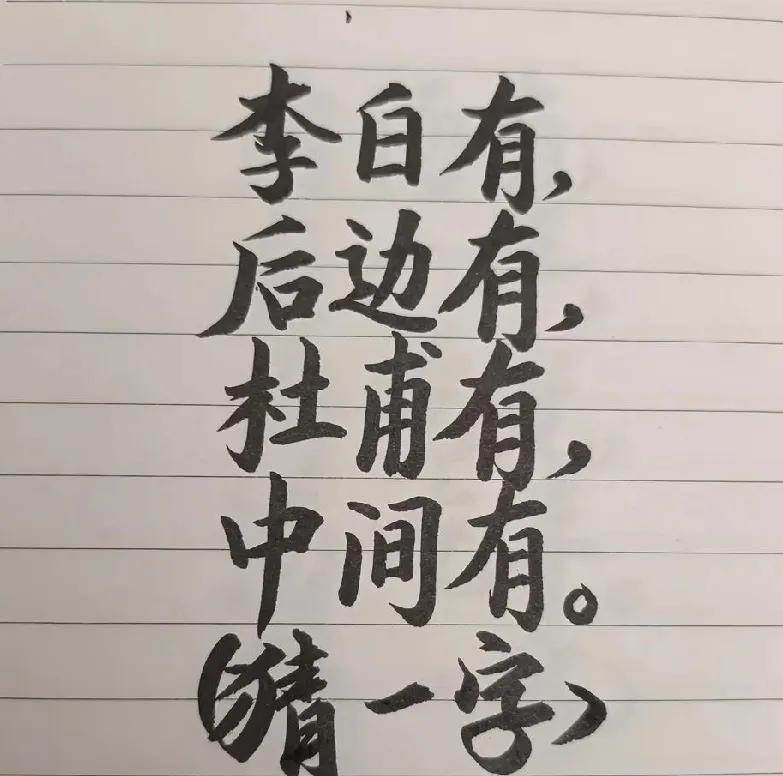 李白有，
后边有，
杜甫有，
中间有。
（猜一字）